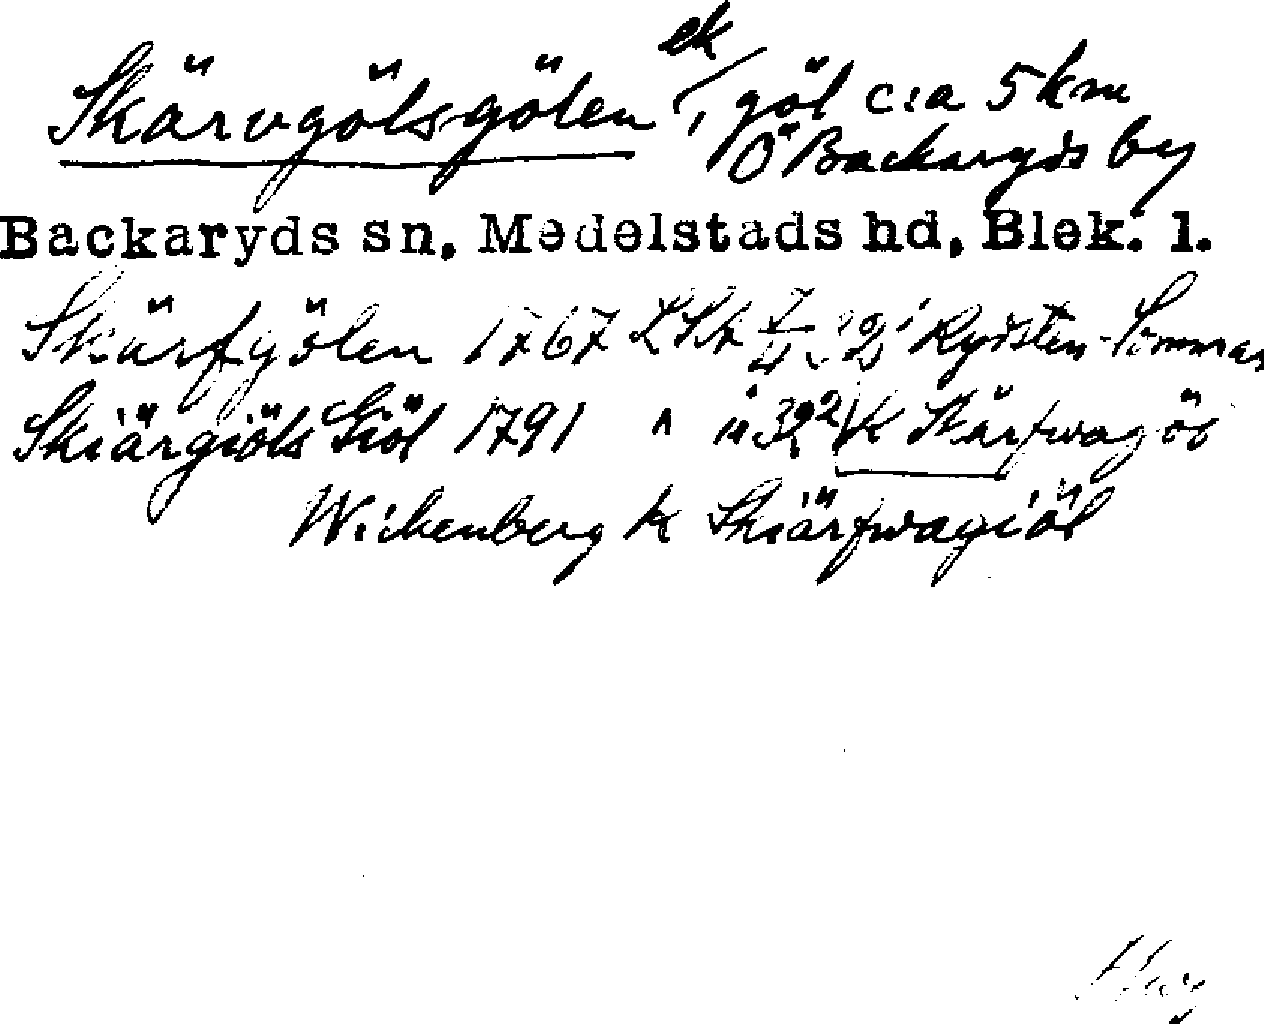 Skärvgölsgölen ek, göl c:a 5 km
Ö Backaryds by
Backaryds sn, Medelstads hd, Blek. l.
Skärfgölen 1767 LSA
Skiärgiöls Giöl 1791 " " K Skärfwagöl
Wickenberg K Skiärfwagiöl